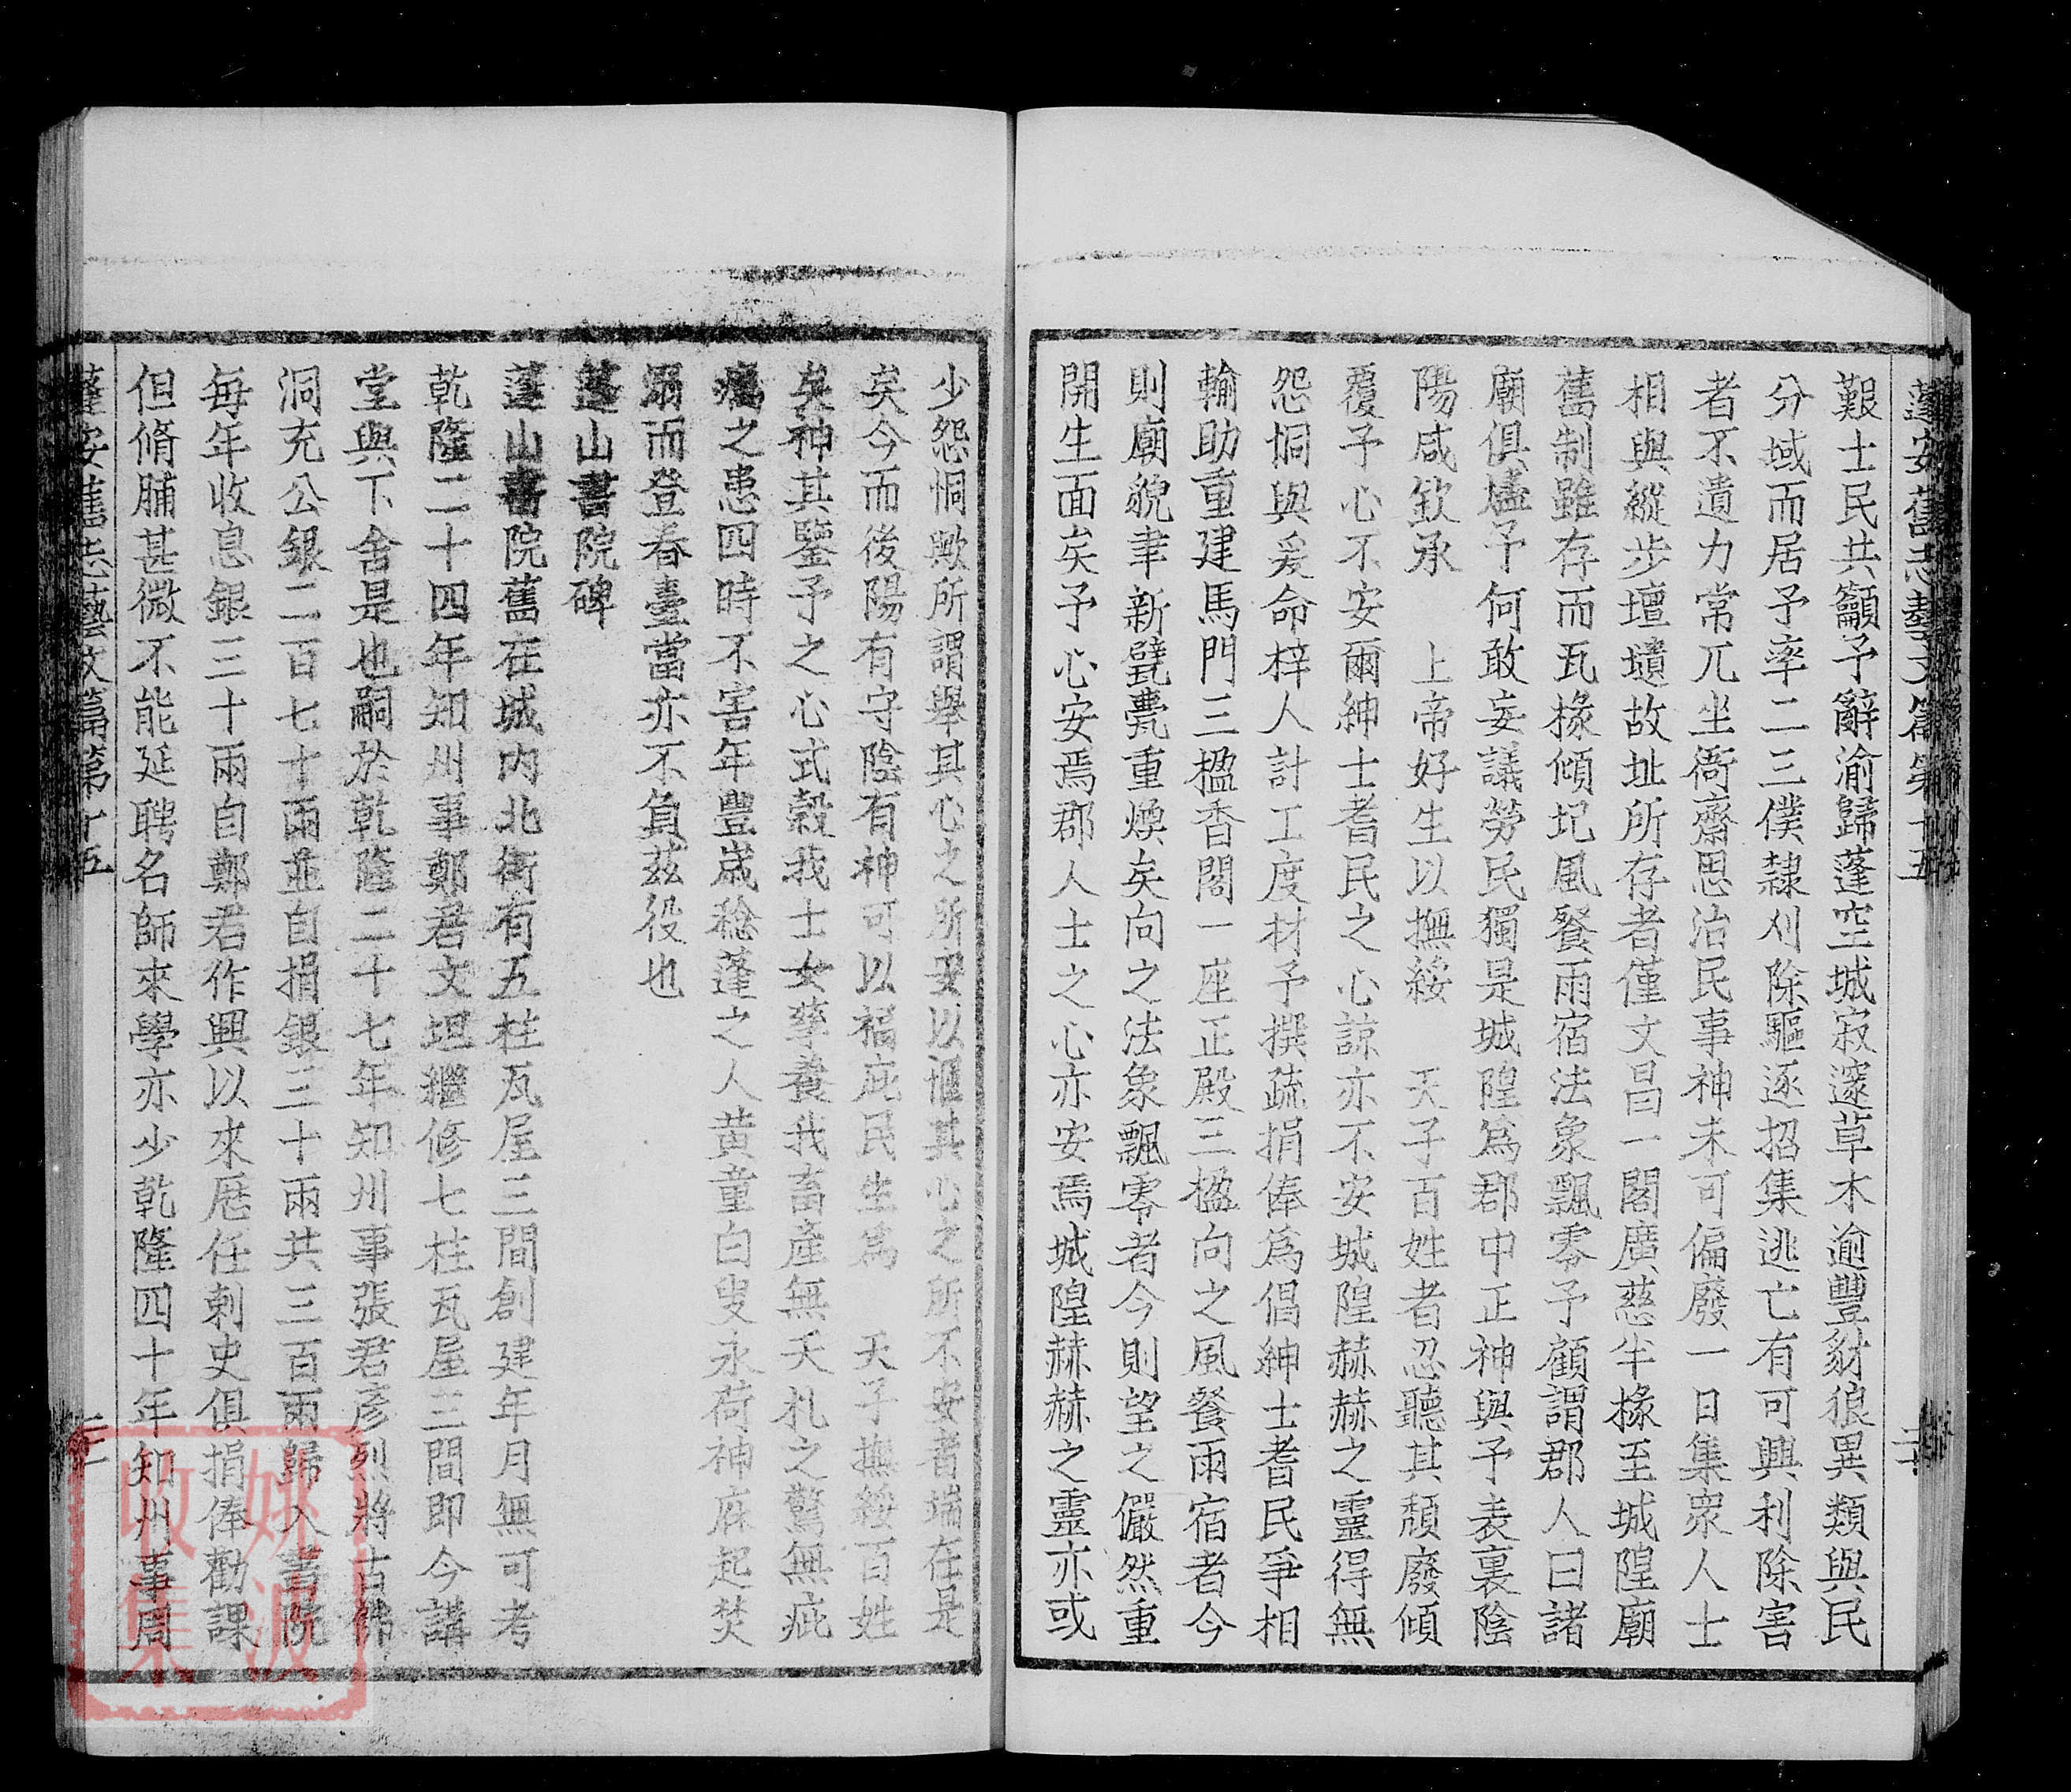 蓬安舊志藝文篇第十五
二十
艱士民共籲予辭渝歸蓬空城寂邃草木逾豐豺狼異類與民
分域而居予率二三僕隸刈除驅逐招集逃亡有可興利除害
者不遺力常兀坐衙齋思治民事神未可偏廢一日集衆人士
相與縱步壇壝故址所存者僅文昌一閣廣慈半椽至城隍廟
舊制雖存而瓦椽傾圮風餐雨宿法象飄零予顧謂郡人曰諸
廟俱燼予何敢妄議勞民獨是城隍爲郡中正神與予表裏陰
陽咸欽承 上帝好生以撫綏 天子百姓者忍聽其頹廢傾
覆予心不安爾紳士耆民之心諒亦不安城隍赫赫之靈得無
怨恫與爰命梓人計工度材予撰疏捐俸爲倡紳士耆民爭相
輸助重建馬門三楹香閣一座正殿三楹向之風餐雨宿者今
則廟貌聿新甓甍重煥矣向之法象飄零者今則望之儼然重
開生面矣予心安焉郡人士之心亦安焉城隍赫赫之靈亦或
少怨恫歟所謂舉其心之所安以愜其心之所不安者端在是
矣今而後陽有守陰有神可以福庇民生爲 天子撫綏百姓
矣神其鑒予之心式穀我士女孳養我畜產無夭札之驚無疵
癘之患四時不害年豐歲稔蓬之人黃童白叟永荷神庥起焚
溺而登春臺當亦不負茲役也
蓬山書院碑
蓬山書院舊在城内北街有五柱瓦屋三間創建年月無可考
乾隆二十四年知州事鄭君文坦繼修七柱瓦屋三間即今講
堂與下舍是也嗣於乾隆二十七年知州事張君彥烈將古佛
洞充公銀二百七十兩並自捐銀三十兩共三百兩歸入書院
每年收息銀三十兩自鄭君作興以來歷任刺史俱捐俸勸課
但脩脯甚微不能延聘名師來學亦少乾隆四十年知州事周
蓬安舊志藝文篇第十五
姚波
收集